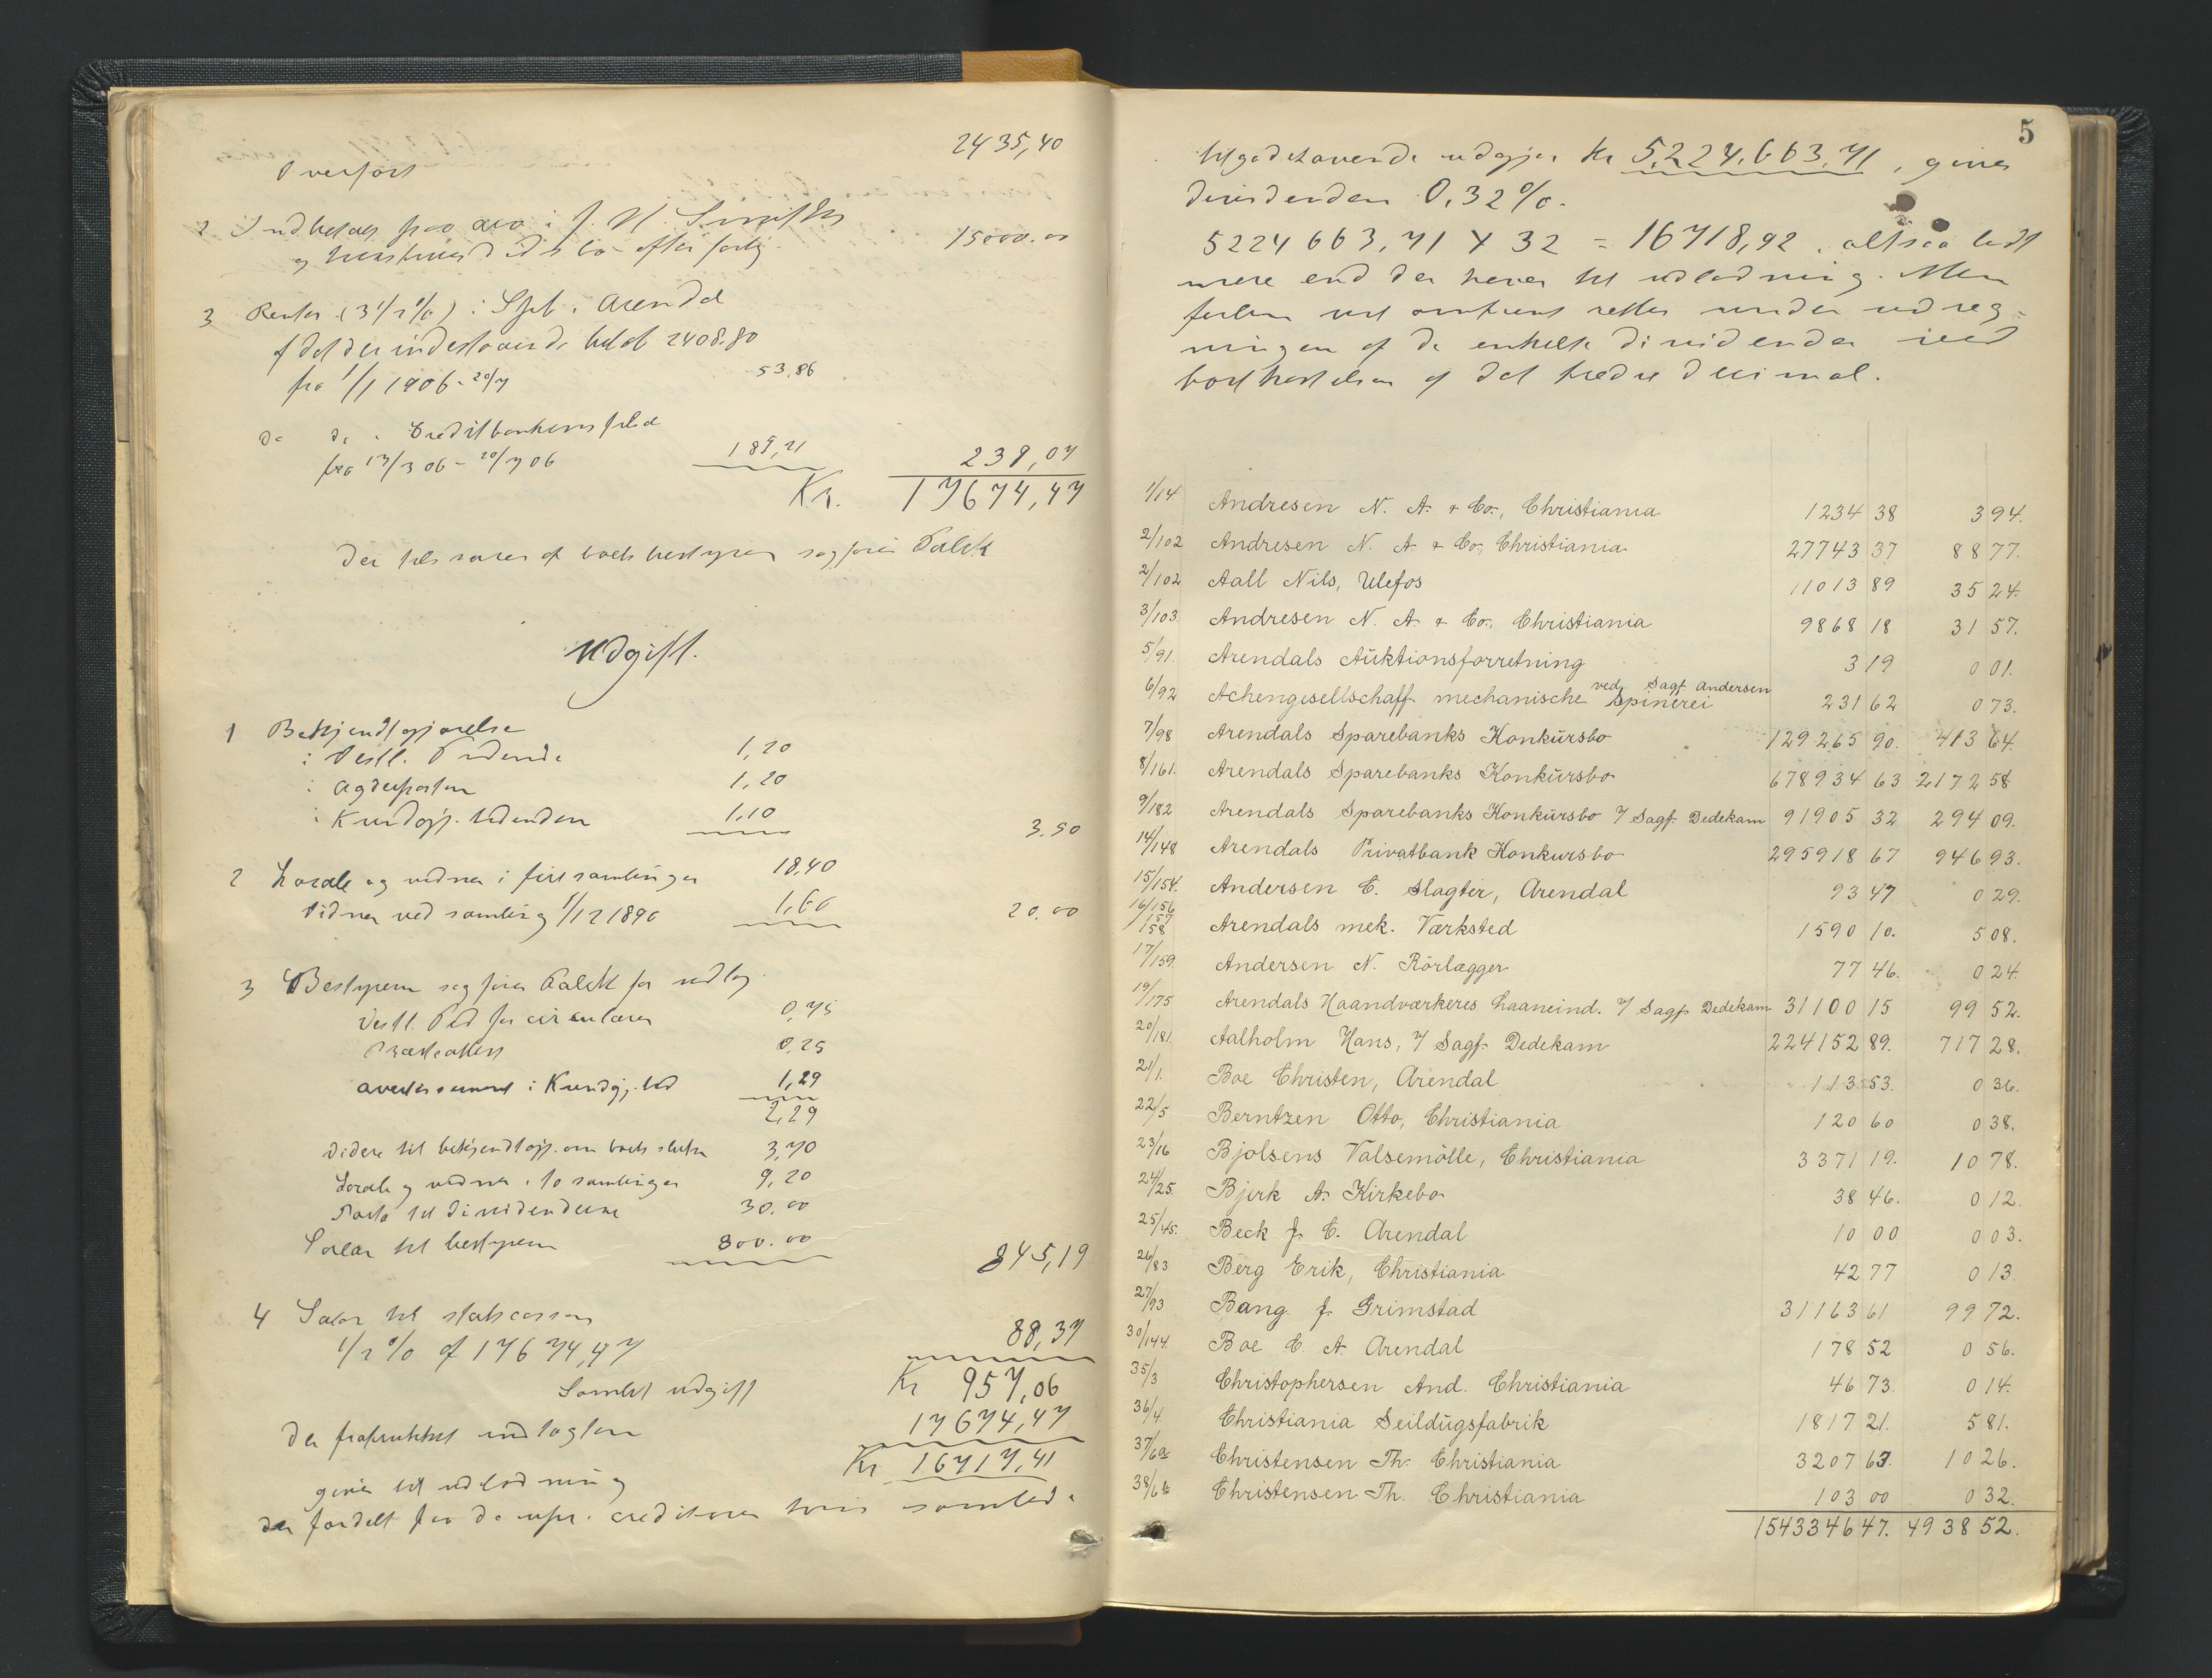 Overført 2435,40
2 Indbetalt fra avo i J. H. Smith
og hustrues død s bo efter forlig 15000.00
3 Renter (3 1/2 %) i Spb. i Arendal
af det der indestaaende beløb 2408.80
fra 1/1 1906 - 20/7 53,86
do do i Creditbankens filial
fra 17/3 06 - 20/7 06 185,21 239,07
Kr. 17674,47
der tilsvares af boets bestyrer sagfører Falck
Udgift.
1 Bekjendtgjørelse
i Vestl. Tidende 1,20
i Agderposten 1,20
i Kundgj. tidenden 1,10 3.50
2 Locale og vidner i fire samlinger 18,40
Vidner ved samling 1/12 1890 1,60 20.00
3 Bestyreren sagfører Falck for udlæg
Vestl. Tid for circulærer 0,75
0,25
avertissement i Kundgj. tid 1,29
2,29
Videre til bekjendtgj. om boets slutn 3,70
Locale og vidner i to samlinger 9,20
Porto til dividenderne 30.00
Salær til bestyreren 800.00 845,19
4 Salær til statscassen
1/2 % af 17674,47 88,37
Samlet udgift Kr 957,06
der fratrukket indtægten 17674,47
giver til udlodning Kr 16717,41
der fordelt paa de upr. creditorer hvis samlede
5
tilgodehavende udgjør Kr 5,224,663,71, giver
dividenden 0,32 %.
5224663,71 X 32 = 16718,92, altsaa lidt
mere end der haves til udlodning. Men
feilen vil omtrent rettes under udreg-
ningen af de enkelte dividender ved
bortkastelsen af det tredie decimal.
1/14. Andresen N. A. & Co., Christiania 1234 38 3 94.
2/102 Andresen N. A. & Co., Christiania 27743 37 88 77.
2/102 Aall Nils, Ulefos 11013 89 35 24.
3/103. Andresen N. A. & Co., Christiania 9868 18 31 57.
5/91. Arendals Auktionsforretning 3 19 0 01.
ved Sagf. Andersen
6/92 Achengesellschaff mechanische Spinerei 231 62 0 73.
7/98 Arendals Sparebanks Konkursbo 129265 90. 413 64.
8/161. Arendals Sparebanks Konkursbo 678934 63 2172 58
9/182 Arendals Sparebanks Konkursbo 7/ Sagf. Dedekam 91905 32 294 09.
14/148 Arendals Privatbank Konkursbo 295918 67 946 93.
15/154. Andersen C. Slagter, Arendal 93 47 0 29.
16/156 157 158 Arendals mek. Værksted 1590 10. 5 08.
17/159. Andersen N. Rørlægger 77 46. 0 24
19/175 Arendals Haandværkeres Laaneind. 7/ Sagf. Dedekam 31100 15 99 52.
20/181. Aalholm Hans, 7/ Sagf. Dedekam 224152 89. 717 28.
21/1. Boe Christen, Arendal 113 53. 0 36.
22/5 Berntzen Otto, Christiania 120 60 0 38.
23/16 Bjolsens Valsemølle, Christiania 3371 19. 10 78.
24/25. Bjerk A. Kirkebo 38 46. 0 12.
25/45. Beck J. C. Arendal 10 00 0 03.
26/83 Berg Erik, Christiania 42 77 0 13.
27/93 Bang J. Grimstad 31163 61 99 72.
30/144. Boe C. A. Arendal 178 52 0 56.
35/3 Christophersen And. Christiania 46 73. 0 14.
36/4. Christiania Seildugsfabrik 1817 21. 5 81.
37/6a Christensen Th. Christiania 3207 63. 10 26.
38/6b Christensen Th. Christiania 103 00 0 32.
1543346 47. 4938 52.